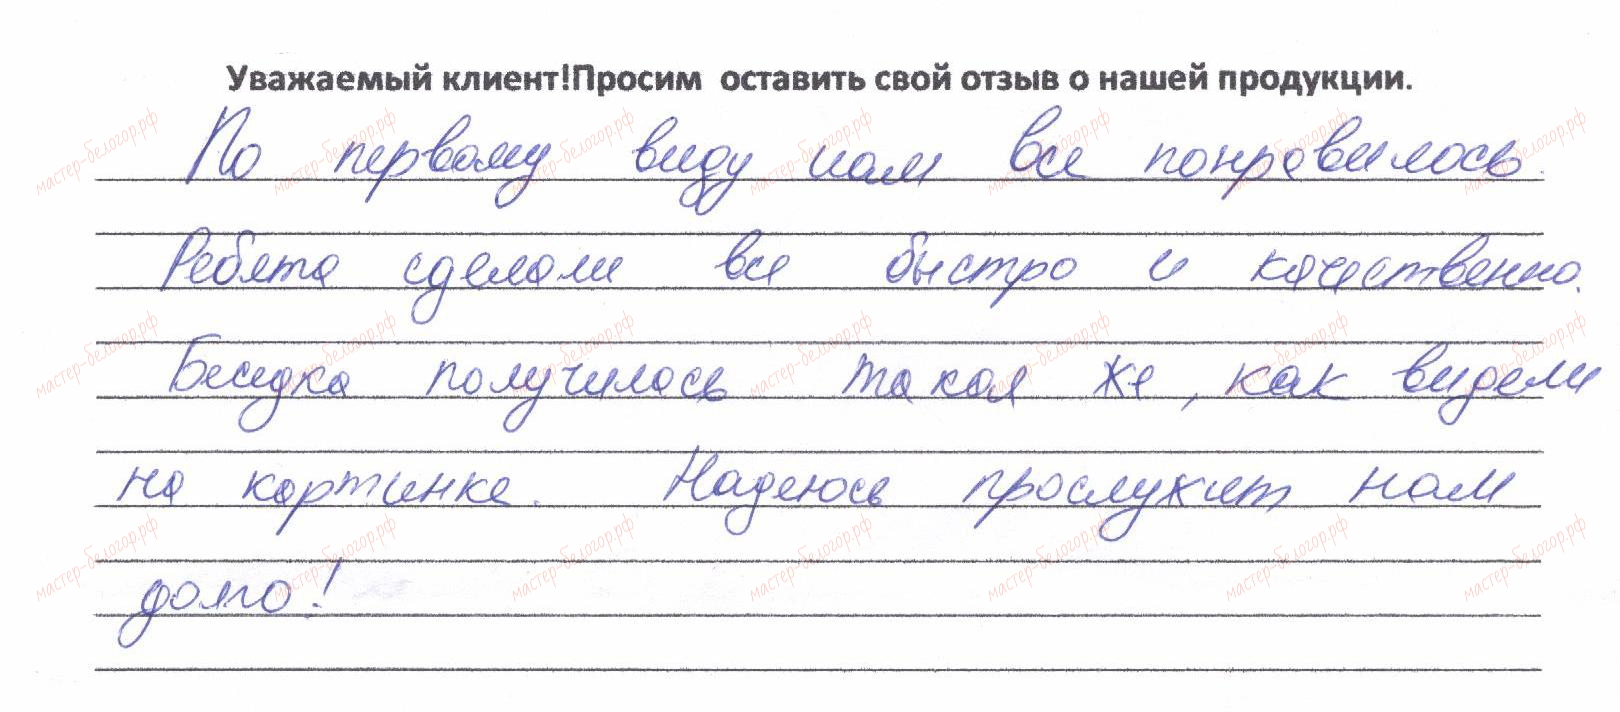 Уважаемый клиент!Просим оставить свой отзыв о нашей продукции.
По первому виду нам все понравилось.
Ребята сделали все быстро и качественно.
Беседка получилась такая же, как видели
на картинке. Надеюсь прослужит нам
долго!
мастер-белогор.рф